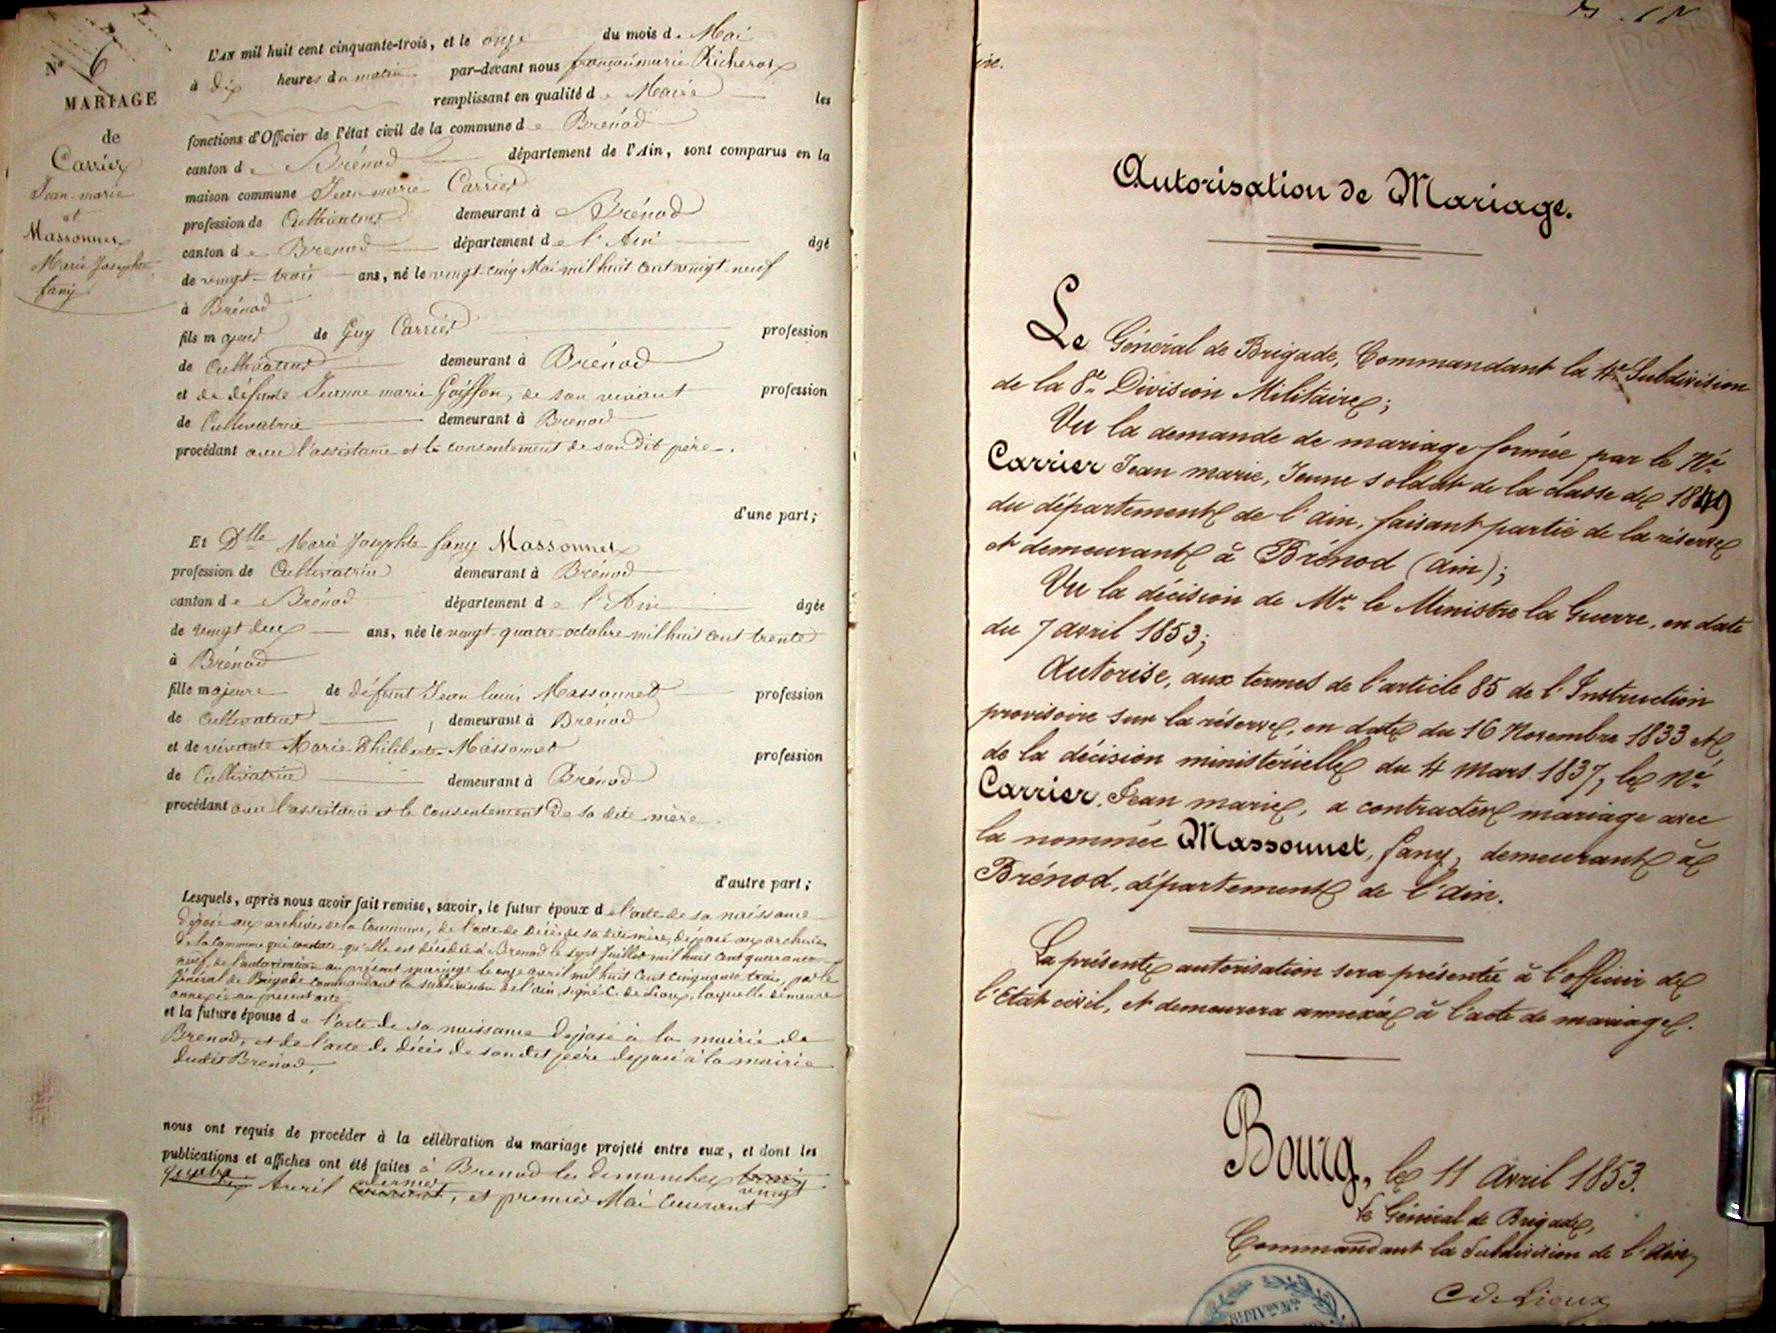 N° 6
MARIAGE
de
Carrier
Jean-marie
et
Massonnet
Marie Josephte
fany
L'AN mil huit cent cinquante-trois, et le onze du mois de Mai
à dix heures du matin par-devant nous françois marie Richerot
remplissant en qualité de Maire les
fonctions d'Officier de l'état civil de la commune de Brénod
canton de Brénod département de l'Ain, sont comparus en la
maison commune Jean marie Carrier
profession de Cultivateur demeurant à Brénod
canton de Brenod département de l'Ain âgé
de vingt-trois ans, né le vingt-cinq Mai mil huit cent vingt-neuf
à Brénod
fils majeur de Guy Carrier profession
de Cultivateur demeurant à Brénod
et de défunte Jeanne marie Goiffon, de son vivant profession
de Cultivatrice demeurant à Brenod
procédant avec l'assistance et le consentement de son dit père.
d'une part;
Et Dlle Marie Josephte fany Massonnet
profession de Cultivatrice demeurant à Brénod
canton de Brénod département de l'Ain âgée
de vingt deux ans, née le vingt-quatre octobre mil huit cent trente
à Brénod
fille majeure de défunt Jean louis Massonnet profession
de Cultivateur demeurant à Brénod
et de vivante Marie Philiberte Massonnet profession
de Cultivatrice demeurant à Brénod
procédant avec l'assistance et le consentement de sa dite mère
d'autre part;
Lesquels, après nous avoir fait remise, savoir, le futur époux de l'acte de sa naissance
déposé aux archives de la Commune, de l'acte de Décès de sa dite mère, déposé aux archives
de la Commune qui constate qu'elle est décédée à Brenod le sept Juillet mil huit cent quarante
neuf, de l'autorisation au présent mariage le onze avril mil huit Cent Cinquante trois, par le
Général de Brigade commandant la subdivision de l'ain, signé C. de Lioux, laquelle demeure
annexée au présent acte
et la future épouse de l'acte de sa naissance déposé à la mairie de
Brenod, et de l'acte de décès de son dit père déposé à la mairie
dudit Brénod.
nous ont requis de procéder à la célébration du mariage projeté entre eux, et dont les
publications et affiches ont été faites à Brenod les dimanches
vingt
quatre Avril dernier, et premier Mai Courant
Autorisation de Mariage.
Le Général de Brigade, Commandant la 4e Subdivision
de la 8e Division Militaire;
Vu la demande de mariage formée par le Né
Carrier Jean marie, Jeune soldat de la classe de 1849
du département de l'ain, faisant partie de la réserve
et demeurant à Brénod (ain);
Vu la décision de Mr le Ministre la Guerre, en date
du 7 avril 1853;
Autorise, aux termes de l'article 85 de l'Instruction
provisoire sur la réserve, en date du 16 Novembre 1833 et
de la décision ministérielle du 4 mars 1837, le Né
Carrier, Jean marie, a contracter mariage avec
la nommée Massonnet, fany, demeurant à
Brénod, département de l'ain.
La présente autorisation sera présentée à l'officier de
l'Etat civil, et demeurera annexée à l'acte de mariage.
Bourg, le 11 avril 1853.
Le Général de Brigade,
Commandant la Subdivision de l'Ain,
C de Lioux